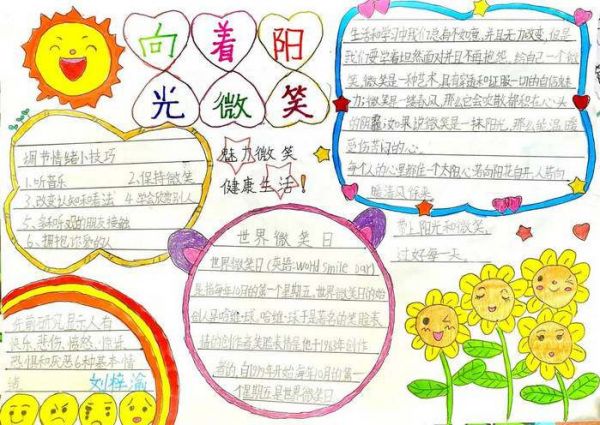 向着阳
光微笑
魅力微笑
健康生活!
生活和学习中我们总有不如意,并且无力改变,但是
我们要学着坦然面对并且不再抱怨,给自己一个微
笑,微笑是一种艺术,具有容和征服一切的自信魅
力;微笑是一缕春风,那么它会吹散郁积在心头
的阴霾;如果说微笑是一抹阳光,那么能温暖
受伤苦闷的心。
每个人的心里都住一个太阳,心若向阳花自开,人若向
暖清风徐来
带上阳光和微笑,
过好每一天。
调节情绪小技巧
1、听音乐 2、保持微笑
3、改变认知和看法 4、学会欣赏别人
5、多和乐观的朋友接触
6、拥抱你爱的人
世界微笑日
世界微笑日(英语:world smile day)
是指每年10月的第一个星期五,世界微笑日的始
创人是哈维·球,哈维·球于是著名的笑脸表
情的创作者,笑脸表情是他于1963年创作
的,自1999年开始,每年10月的第一
个星期五是世界微笑日
乐,悲伤,愤怒,惊乐
恐惧和厌恶6种基本情
绪
刘梓渝